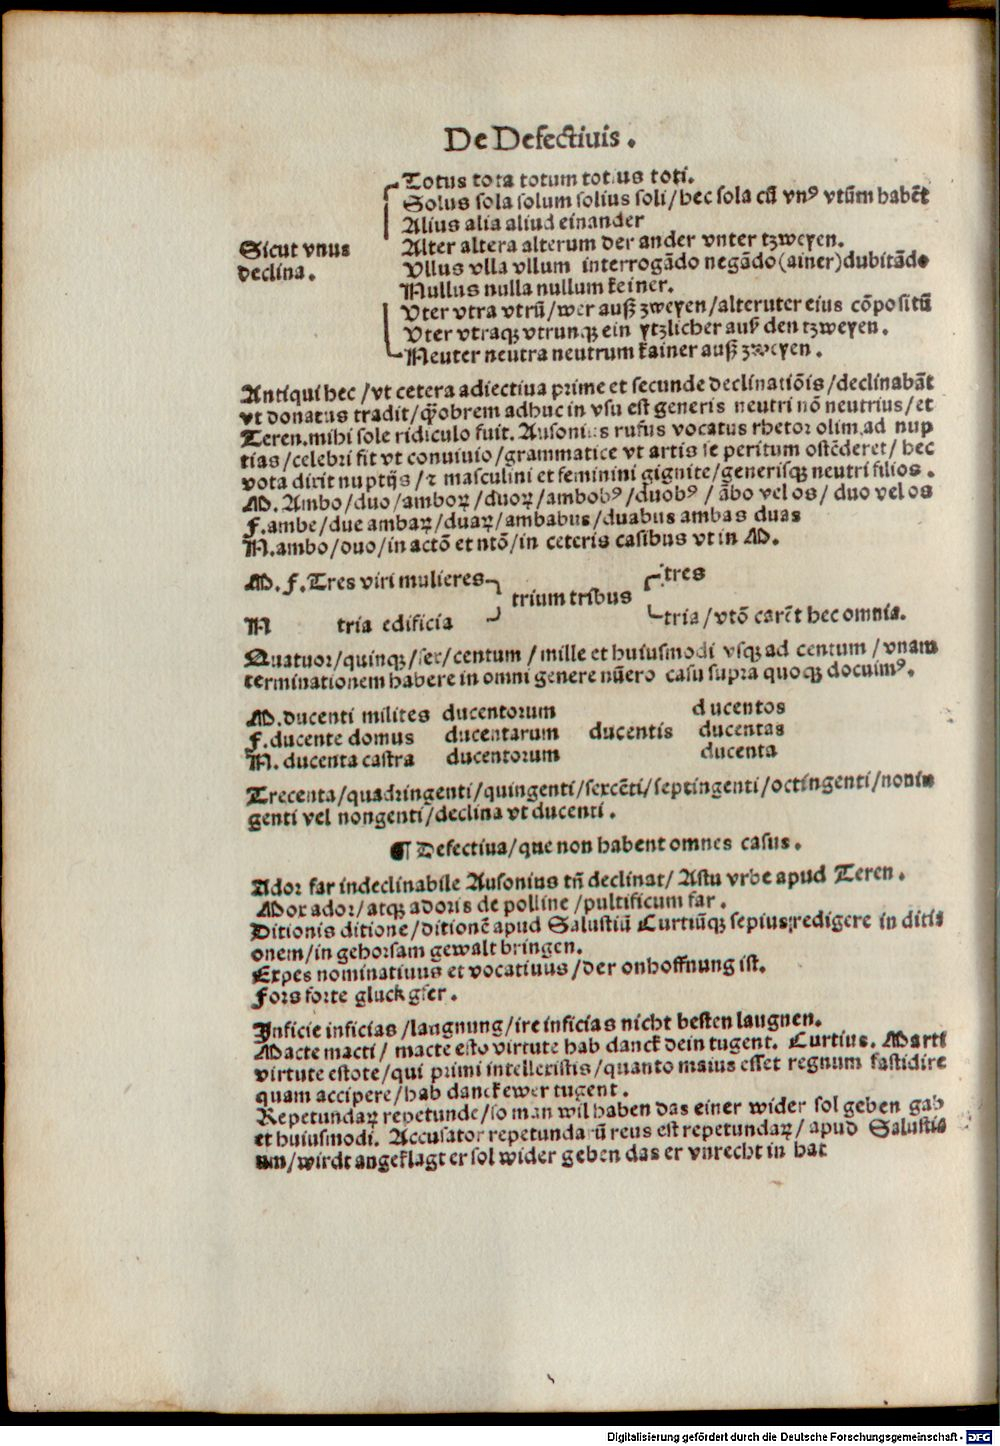 De Defectiuis.
Totus tota totum totius toti.
Solus sola solum solius soli/hec sola cū vnꝰ vtūm habēt
Alius alia aliud einander
Sicut vnus
declina.
Alter altera alterum der ander vnter tzweyen.
Vllus vlla vllum interrogādo negādo(ainer)dubitādo
Nullus nulla nullum keiner.
Vter vtra vtrū/wer auß zweyen/alteruter eius cōpositū
Vter vtraqꝫ vtrunqꝫ ein ytzlicher auß den tzweyen.
Neuter neutra neutrum kainer auß zweyen.
Antiqui hec/vt cetera adiectiua prime et secunde declinatiōis/declinabāt
vt donatus tradit/q̈obrem adhuc in vsu est generis neutri nō neutrius/et
Teren.mihi sole ridiculo fuit. Ausonius rufus vocatus rhetor olim.ad nup
tias/celebri fit vt conuiuio/grammatice vt artis se peritum ostēderet/hec
vota dixit nuptijs/⁊ masculini et feminini gignite/generisqꝫ neutri filios.
M. Ambo/duo/amboꝝ/duoꝝ/ambobꝰ/duobꝰ/ābo vel os/duo vel os
F.ambe/due ambaꝝ/duaꝝ/ambabus/duabus ambas duas
N.ambo/duo/in actō et ntō/in ceteris casibus vt in M.
M. F. Tres viri mulieres trium tribus tres
N tria edificia tria/vtō carēt hec omnia.
Quatuor/quinqꝫ/sex/centum/mille et huiusmodi vsqꝫ ad centum/vnam
terminationem habere in omni genere nūero casu supra quoqꝫ docuimꝰ.
M.ducenti milites ducentorum ducentos
F.ducente domus ducentarum ducentis ducentas
N.ducenta castra ducentorum ducenta
Trecenta/quadringenti/quingenti/sexcēti/septingenti/octingenti/nonin
genti vel nongenti/declina vt ducenti.
¶ Defectiua/que non habent omnes casus.
Ador far indeclinabile Ausonius tñ declinat/Astu vrbe apud Teren.
Mox ador/atqꝫ adoris de polline/pultificum far.
Ditionis ditione/ditionē apud Salustiū Curtiūqꝫ sepius:redigere in diti
onem/in gehorsam gewalt bringen.
Expes nominatiuus et vocatiuus/der onhoffnung ist.
Fors forte gluck gfer.
Inficie inficias/laugnung/ire inficias nicht besten laugnen.
Macte macti/macte esto virtute hab danck dein tugent. Curtius. Macti
virtute estote/qui primi intellexistis/quanto maius esset regnum fastidire
quam accipere/hab danck ewer tugent.
Repetundaꝝ repetunde/so man wil haben das einer wider sol geben gab
et huiusmodi. Accusator repetundarū reus est repetundaꝝ/apud Salusti
um/wirdt angeklagt er sol wider geben das er vnrecht in hat
Digitalisierung gefördert durch die Deutsche Forschungsgemeinschaft - DFG